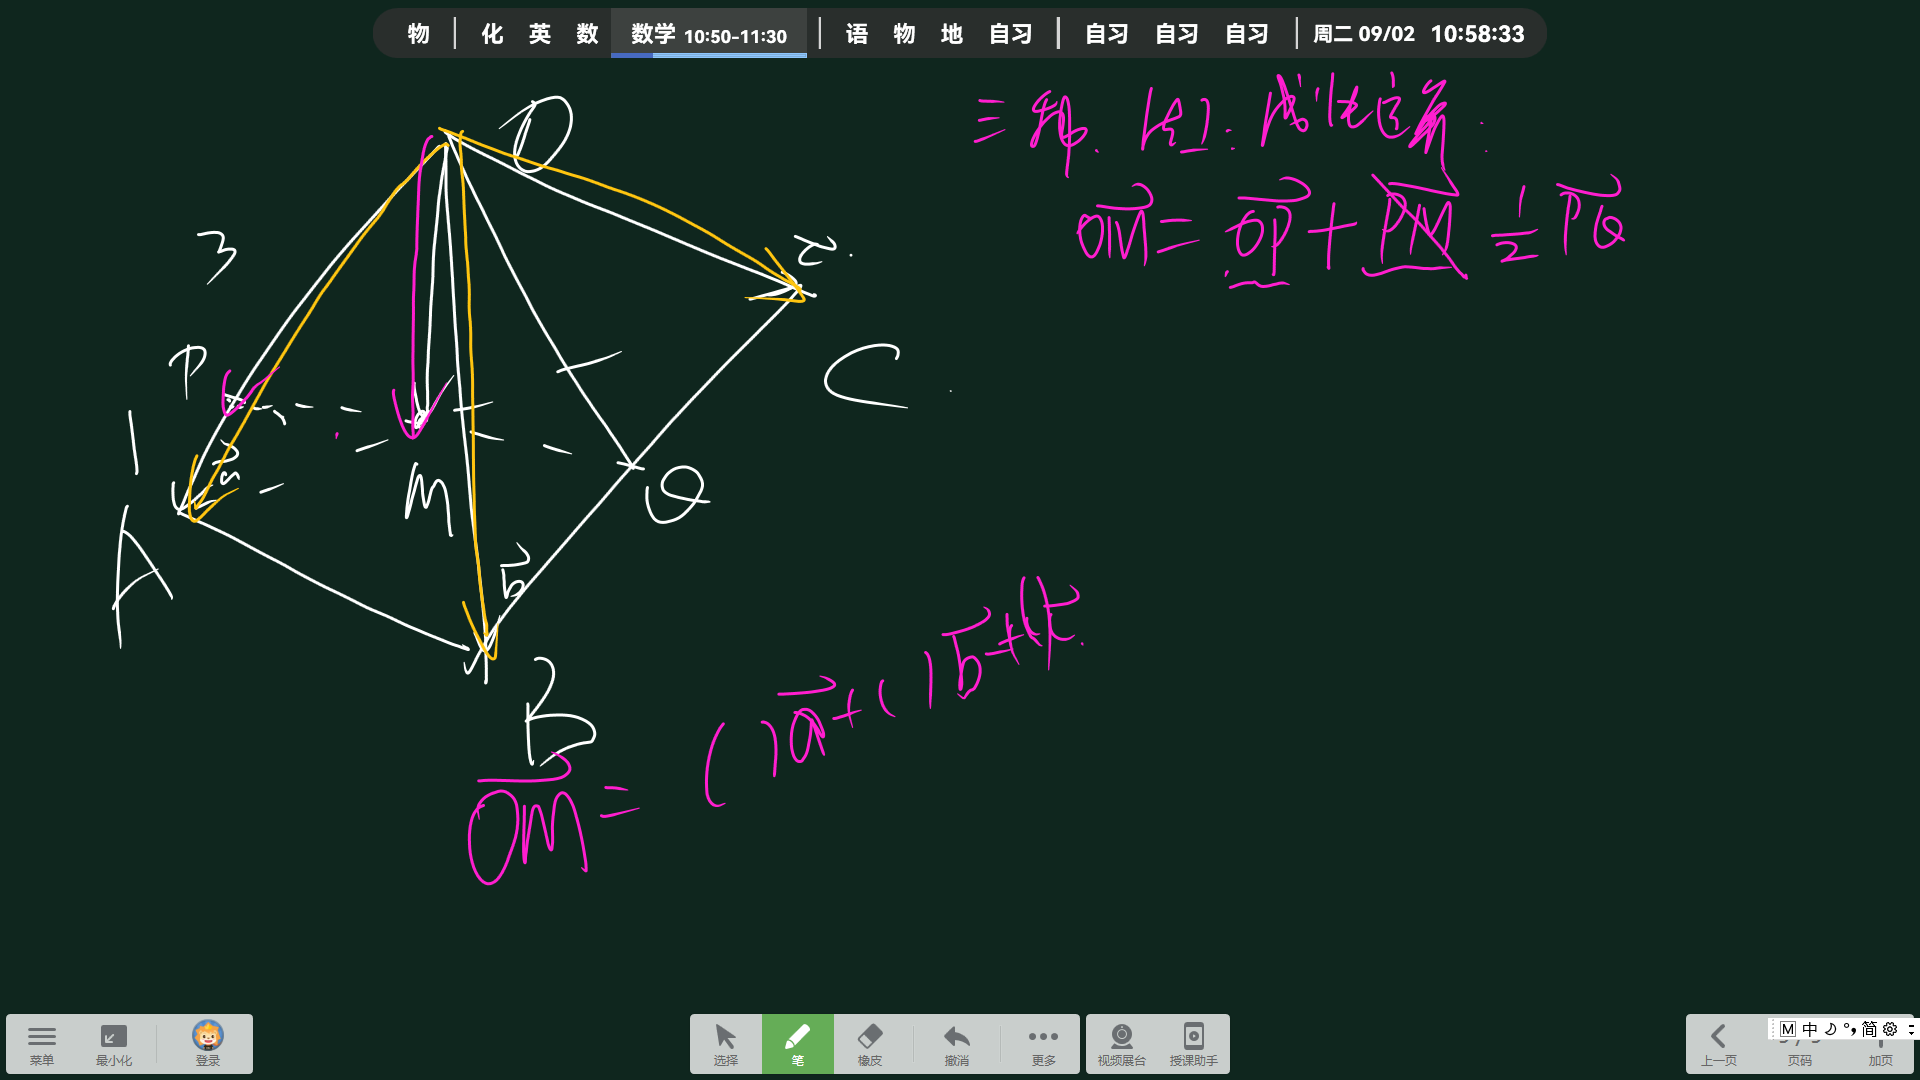 物 | 化 英 数 数学 10:50-11:30 | 语 物 地 自习 | 自习 自习 自习 | 周二 09/02 10:58:33
三种.
OM = OP + PM 1/2 PQ
O
3
c
P
C
1
a
M
Q
A
b
B
OM = ( )a + ( )b + ( )c.
菜单 最小化 登录 选择 笔 橡皮 撤消 更多 视频展台 授课助手 上一页 页码 加页
M 中 简